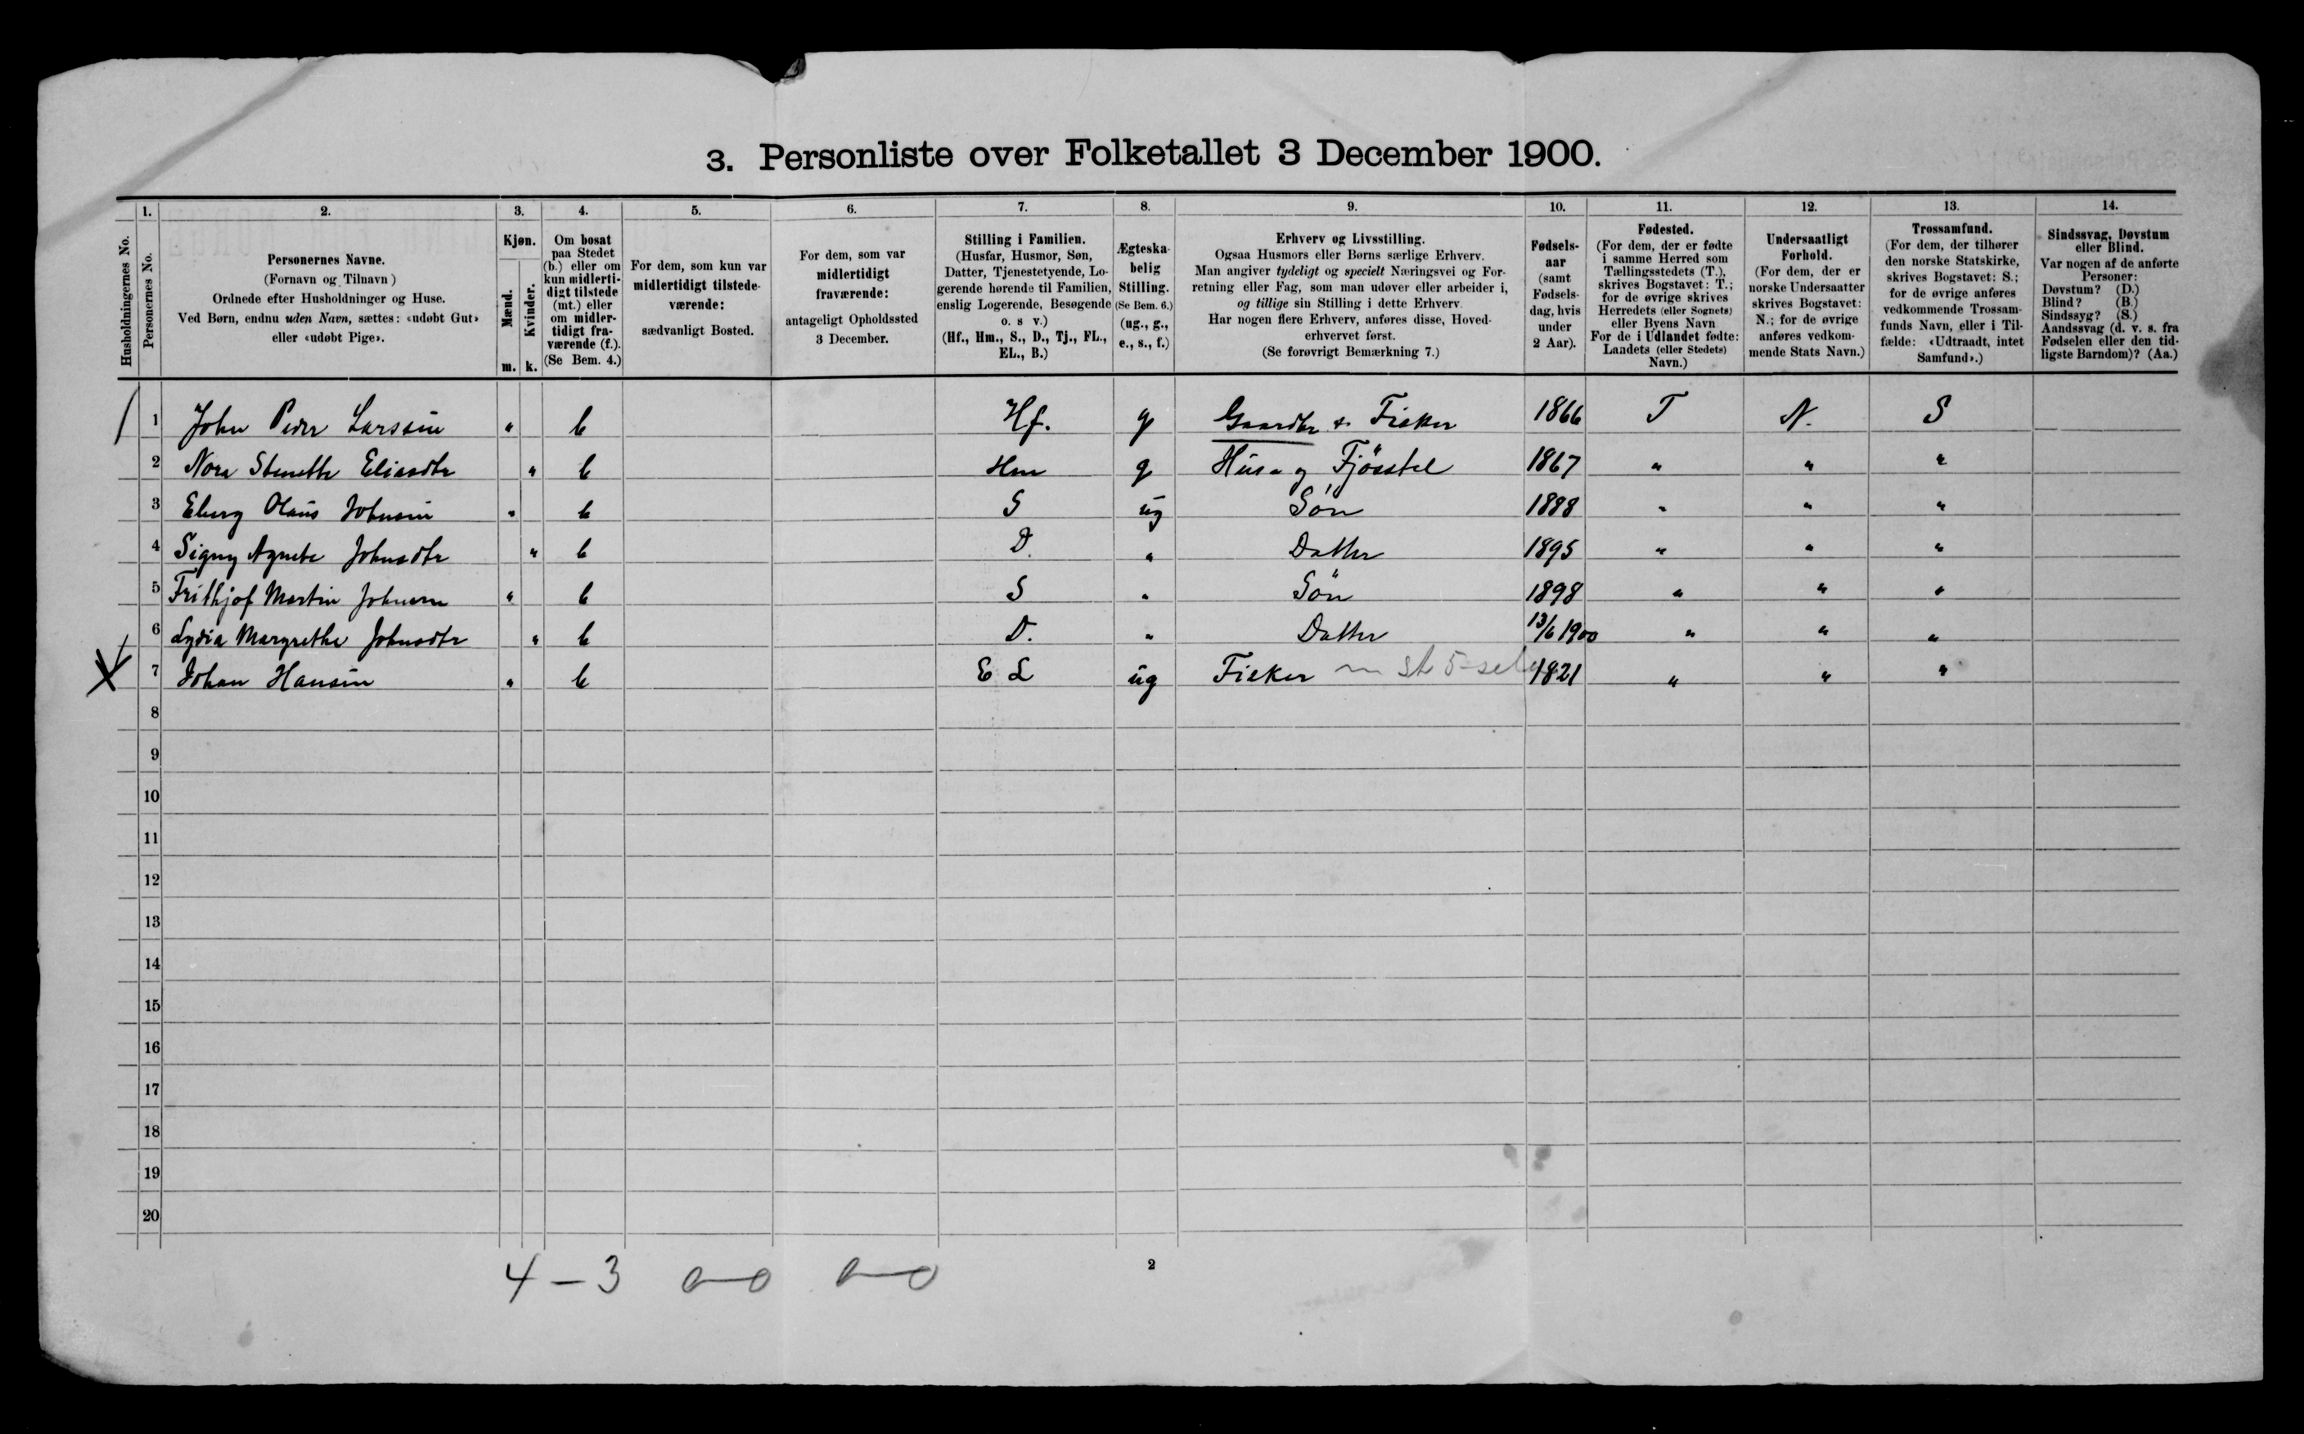 3. Personliste over Folketallet 3 December 1900.
1. 2. 3. 4. 5. 6. 7. 8. 9. 10. 11. 12. 13. 14.
Husholdningernes No.
Personernes No.
Personernes Navne.
(Fornavn og Tilnavn)
Ordnede efter Husholdninger og Huse.
Ved Børn, endnu uden Navn, sættes: «udøbt Gut»
eller «udøbt Pige».
Kjøn.
Mænd.
Kvinder.
m. k.
Om bosat
paa Stedet
(b.) eller om
kun midlerti-
digt tilstede
(mt.) eller
om midler-
tidigt fra-
værende (f.).
(Se Bem. 4.)
For dem, som kun var
midlertidigt tilstede-
værende:
sædvanligt Bosted.
For dem, som var
midlertidigt
fraværende:
antageligt Opholdssted
3 December.
Stilling i Familien.
(Husfar, Husmor, Søn,
Datter, Tjenestetyende, Lo-
gerende hørende til Familien,
enslig Logerende, Besøgende
o. s v.)
(Hf., Hm., S., D., Tj., FL.,
EL., B.)
Ægteska-
belig
Stilling.
(Se Bem. 6.)
(ug., g.,
e., s., f.)
Erhverv og Livsstilling.
Ogsaa Husmors eller Børns særlige Erhverv.
Man angiver tydeligt og specielt Næringsvei og For-
retning eller Fag, som man udøver eller arbeider i,
og tillige sin Stilling i dette Erhverv.
Har nogen flere Erhverv, anføres disse, Hoved-
erhvervet først.
(Se forøvrigt Bemærkning 7.)
Fødsels-
aar
(samt
Fødsels-
dag, hvis
under
2 Aar).
Fødested.
(For dem, der er fødte
i samme Herred som
Tællingsstedets (T.),
skrives Bogstavet: T.;
for de øvrige skrives
Herredets (eller Sognets)
eller Byens Navn
For de i Udlandet fødte:
Landets (eller Stedets)
Navn.)
Undersaatligt
Forhold.
(For dem, der er
norske Undersaatter
skrives Bogstavet:
N.; for de øvrige
anføres vedkom-
mende Stats Navn.)
Trossamfund.
(For dem, der tilhører
den norske Statskirke,
skrives Bogstavet: S.;
for de øvrige anføres
vedkommende Trossam-
funds Navn, eller i Til-
fælde: «Udtraadt, intet
Samfund».)
Sindssvag, Døvstum
eller Blind.
Var nogen af de anførte
Personer:
Døvstum? (D.)
Blind? (B.)
Sindssyg? (S.)
Aandssvag (d. v. s. fra
Fødselen eller den tid-
ligste Barndom)? (Aa.)
1 John Peder Larssen " b Hf. g Gaardbr & Fisker 1866 T N. S
2 Nora Stenette Eliasdtr " b Hm g Hus- og Fjösstel 1867 " " "
3 Elling Olaus Johnsen " b S ug Sön 1888 " " "
4 Signy Agnete Johnsdtr " b D. " Datter 1895 " " "
5 Frithjof Martin Johnsen " b S " Sön 1898 " " "
6 Lydia Margrethe Johnsdtr " b D. " Datter 13/6 1900 " " "
7 Johan Hansen " b E L ug Fisker 1821 " " "
8
9
10
11
12
13
14
15
16
17
18
19
20
4 – 3 0–0 0–0
2